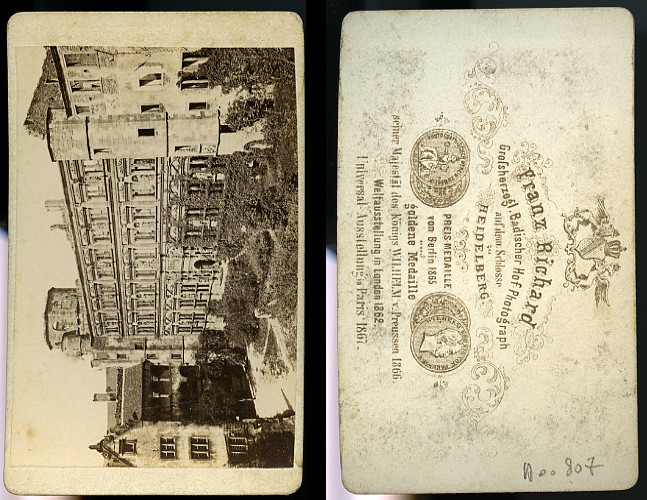 Franz Richard
Großherzogl. Badischer Hof Photograph
auf dem Schlosse
zu
HEIDELBERG
PREIS-MEDAILLE
von Berlin 1865
und
goldene Medaille
seiner Majestät des Königs WILHELM v. Preussen 1866.
Weltausstellung in London 1862.
Universal-Ausstellung in Paris 1867.
A 00 807